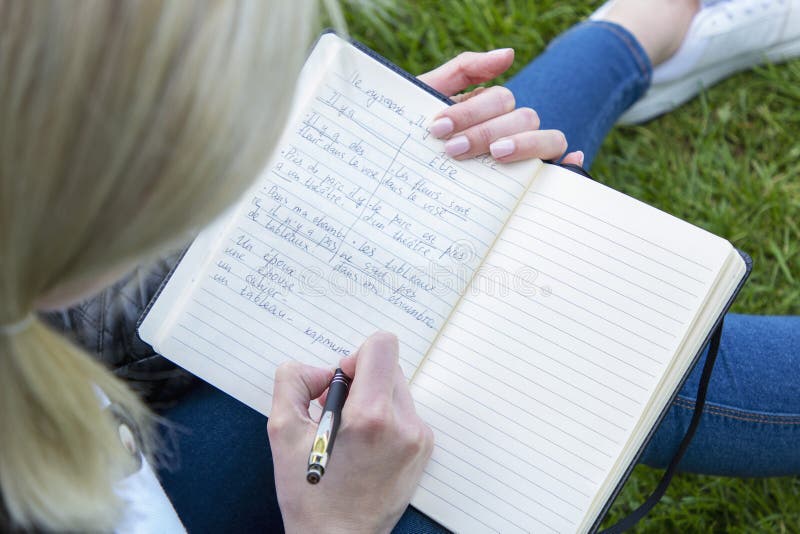 Il y a
Être
Il y a des
fleur dans le vase
Les fleurs sont
dans le vase
Près du parc il y
a un théâtre.
le parc est pas
d'un théâtre
Dans ma chambre
il n'y a pas
de tableaux
les tableaux
ne sont pas
dans ma chambre.
Un époux
une épouse
un cahier
un tableau - картина